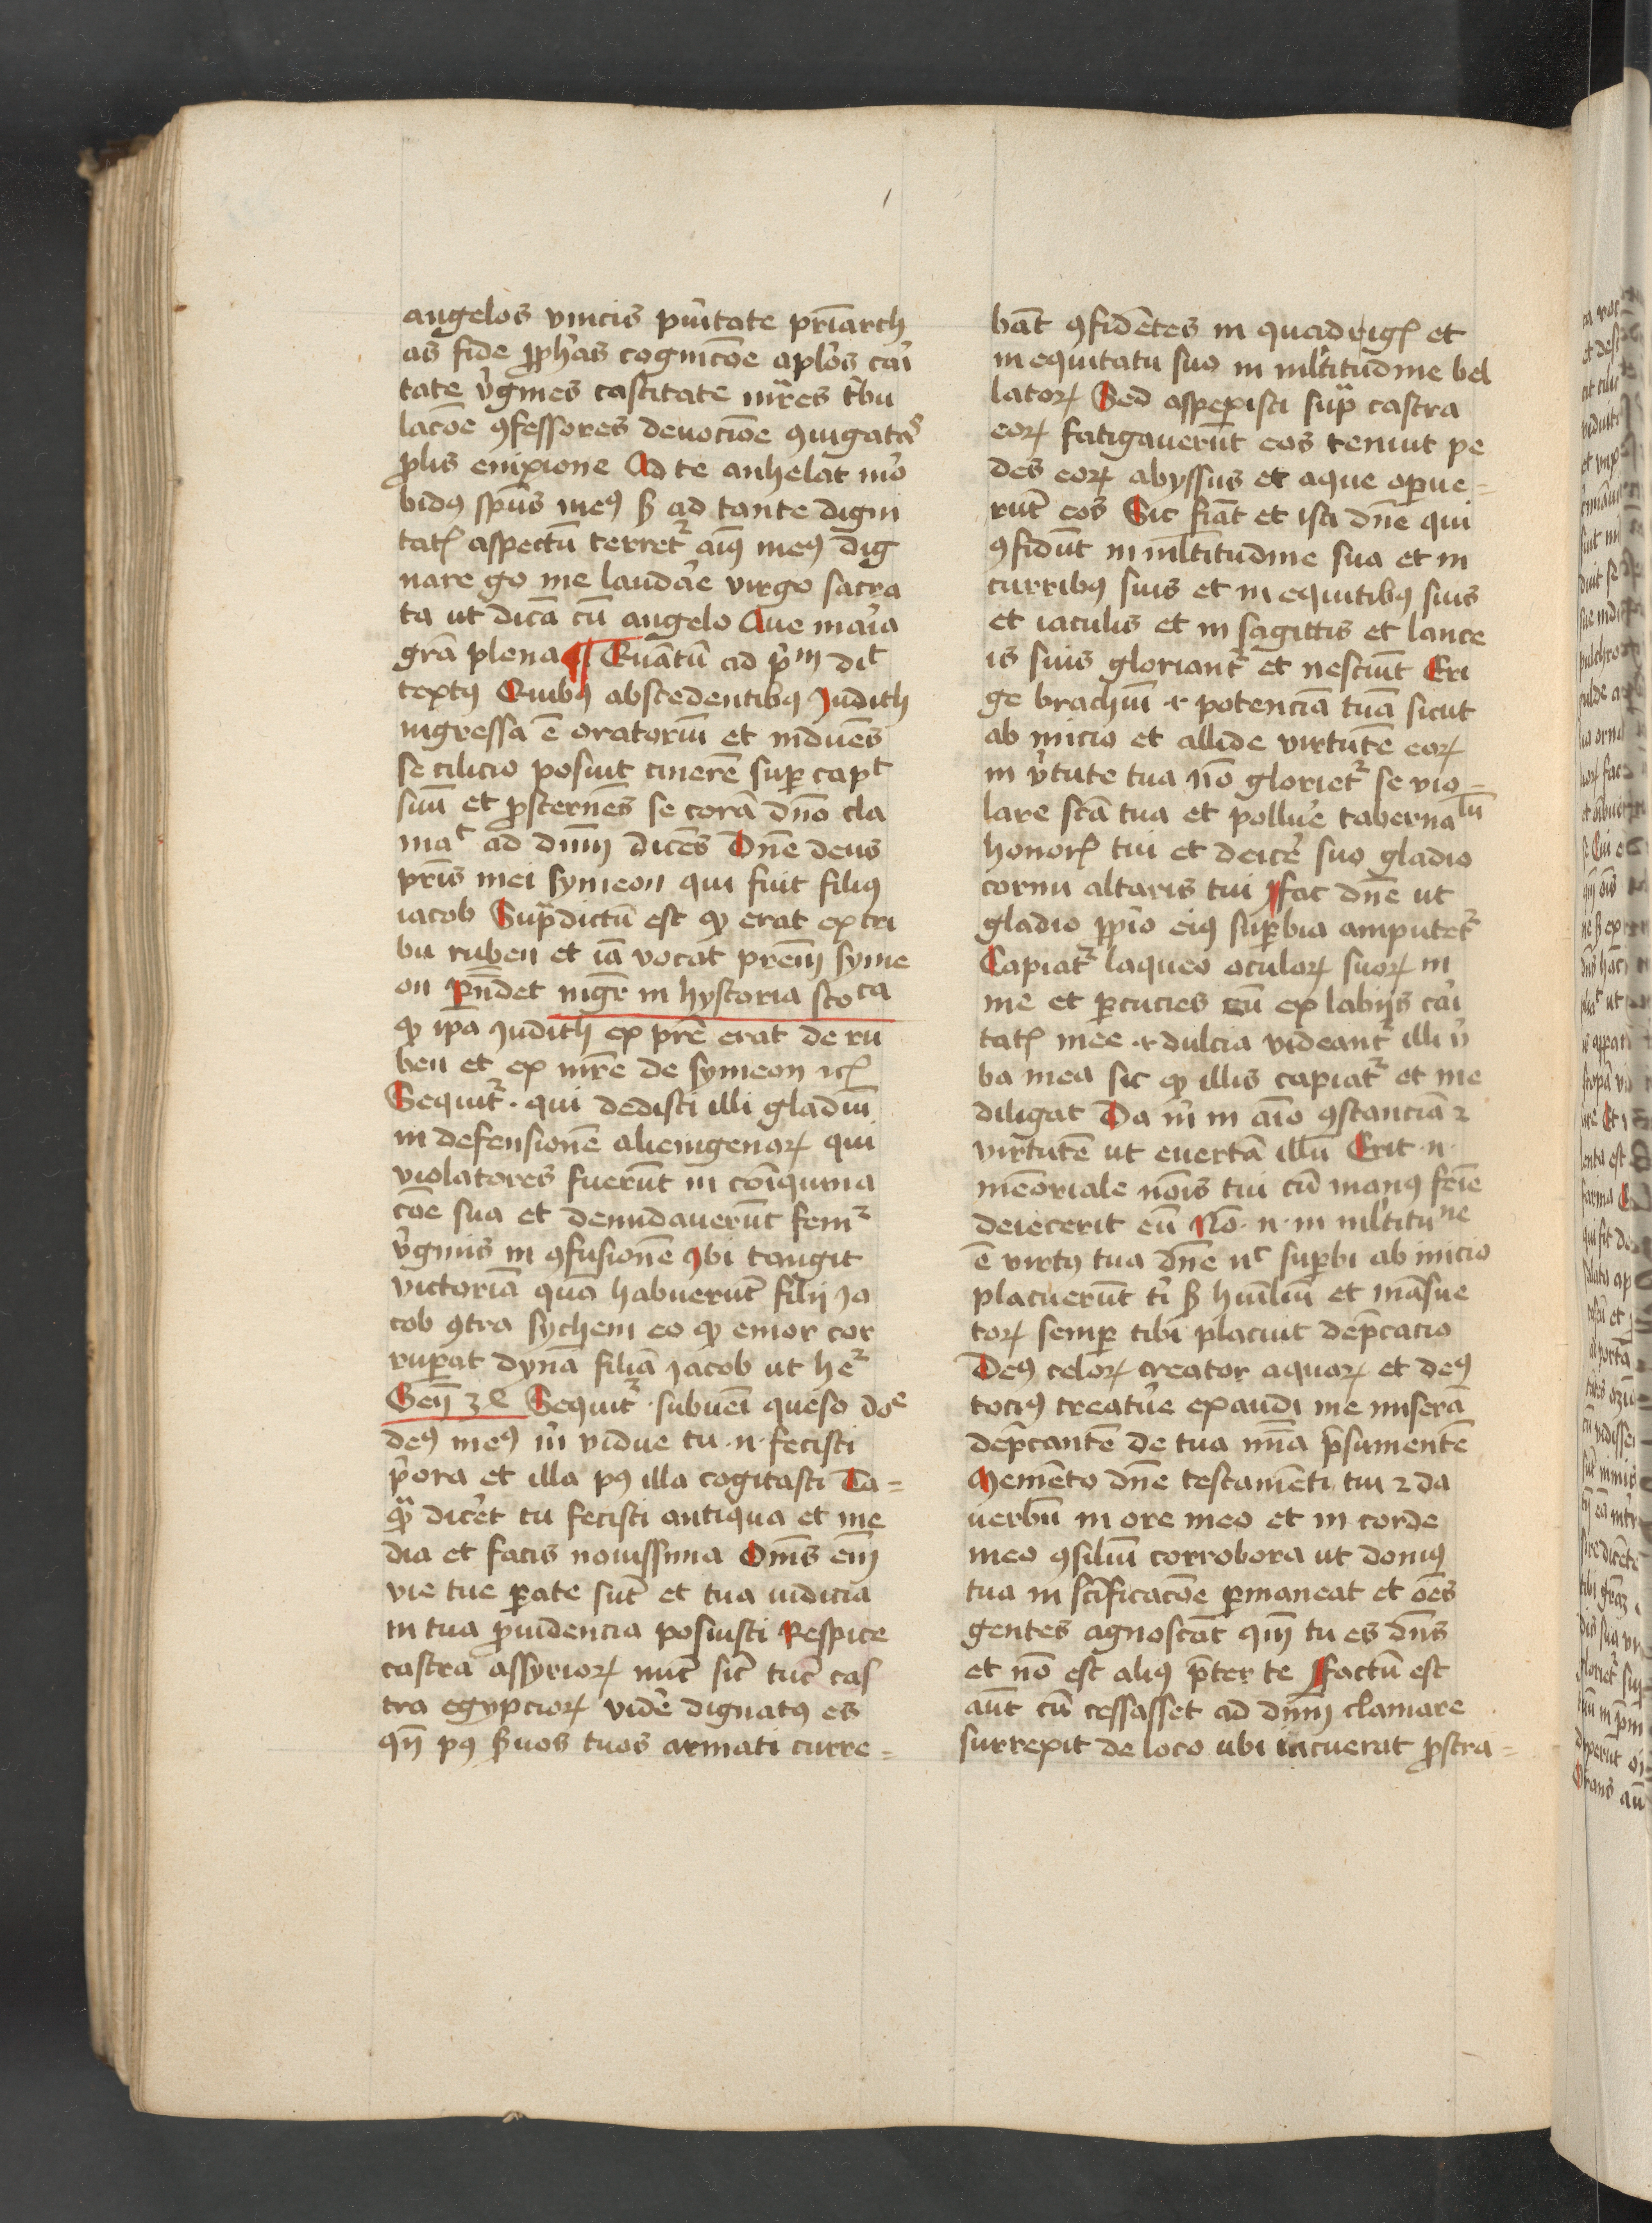 angelos vincis pu͛itate pr̄iarch
as fide ꝓph͛as cognicōe apl͛os cai͛
tate v͛gines castitate mr̄es t͛bu
lacōe ꝯfessores deuocōe ꝯiugatas
ꝓlis enixione Ad te anhelat mo͛
bidꝰ sp̄us meꝰ sꝫ ad tante digni
tatꝭ aspectū terret᷑ aīꝰ meꝰ dig
nare gͦ me laudar͛e virgo sacra
ta ut dicā cū angelo Aue mar͛ia
grā plena ¶ Quātū ad p͛m dic̄t
textꝰ Quibꝰ abscedentibꝰ Judith
ingressa ē oratoriū et induēs
se cilicio posuit cinerē suꝑ capt
suū et ꝓsternēs se corā dn̄o cla
mat ad dn̄m dicēs Dn̄e deus
pr̄is mei symeon qui fuit filiꝰ
iacob Supͣdictū est qꝫ erat ex tri
bu ruben et iā vocat pr̄em syme
on Rn̄det mgr̄ in hystoria scoca
qꝫ ip̄a Judith ex pr̄e erat de ru
ben et ex mr̄e de symeon ⁊cꝭ
Sequit᷑ · qui dedisti illi gladiū
in defensionē alienigenaꝝ qui
violatores fuerūt in coīquina
cōe sua et denudauerūt fem᷑
v͛ginis in ꝯfusionē Ibi tangit
victoriā quā habuerūt filij Ja
cob ꝯtra sychem eo qꝫ emor cor
ruꝑat dynā filiā Jacob ut he᷑
Geñ 34 Sequit᷑ · subueni queso doe
deꝰ meꝰ m͛ vidue tu · n · fecisti
p͛ora et illa pꝰ illa cogitasti Ta=
qͣ dic͛et tu fecisti antiqua et me
dia et facis nouissima Om̄s em̄
vie tue ꝑate sūt et tua iudicia
in tua ꝓuidencia posuisti Respice
castra assyrioꝝ nūc sic̄ tūc cas
tra egypcioꝝ vide͛ dignatꝰ es
qn̄ pꝰ s͛uos tuos armati curre=
bāt ꝯfidētes in quadrigꝭ et
in equitatu suo in ml͛titudine bel
latoꝝ Sed aspexisti supͣ castra
eoꝝ fatigauerūt eos tenuit pe
des eoꝝ abyssus et aque oꝑue=
rūt eos Sic fiāt et isti dn̄e qui
ꝯfidūt in ml̄titudine sua et in
curribꝰ suis et in equitibꝰ suis
et iaculis et in sagittis et lance
is suis gloriant᷑ et nesciūt Eri
ge brachiū ⁊ potenciā tuā sicut
ab inicio et allide virtutē eoꝝ
in v͛tute tua nō gloriet᷑ se vio=
lare sc̄a tua et pollue͛ tabernalū
honorꝭ tui et deice͛ suo gladio
cornu altaris tui Fac dn̄e ut
gladio ꝓprio eiꝰ suꝑbia amputet᷑
Capiat᷑ laqueo oculoꝝ suoꝝ in
me et ꝑcucies eū ex labijs cai͛
tatꝭ mee ⁊ dulcia videant᷑ illi v͛
ba mea sic qꝫ illis capiat᷑ et me
diligat Da m͛ in aīo ꝯstanciā ⁊
virtutē ut euertā illū Erit · n ·
memoriale noīs tui cū manꝰ feīe
deiecerit eū Nō · n · in ml͛titune
ē virtꝰ tua dn̄e nc̄ suꝑbi ab inicio
placuerūt t͛i sꝫ huīliū et māsue
toꝝ semꝑ tibi placuit dep̄cacio
Deꝰ celoꝝ creator aquaꝝ et deꝰ
tociꝰ creatu͛e exaudi me miserā
dep̄cantē de tua mīa p̄sumentē
Memēto dn̄e testamēti tui ⁊ da
uerbū in ore meo et in corde
meo ꝯsiliū corrobora ut domꝰ
tua in sc̄ificacōe ꝑmaneat et oēs
gentes agnoscāt qm̄ tu es dn̄s
et nō est aliꝰ p̄ter te Factū est
aūt cū cessasset ad dn̄m clamare
surrexit de loco ubi iacuerat ꝓstra=